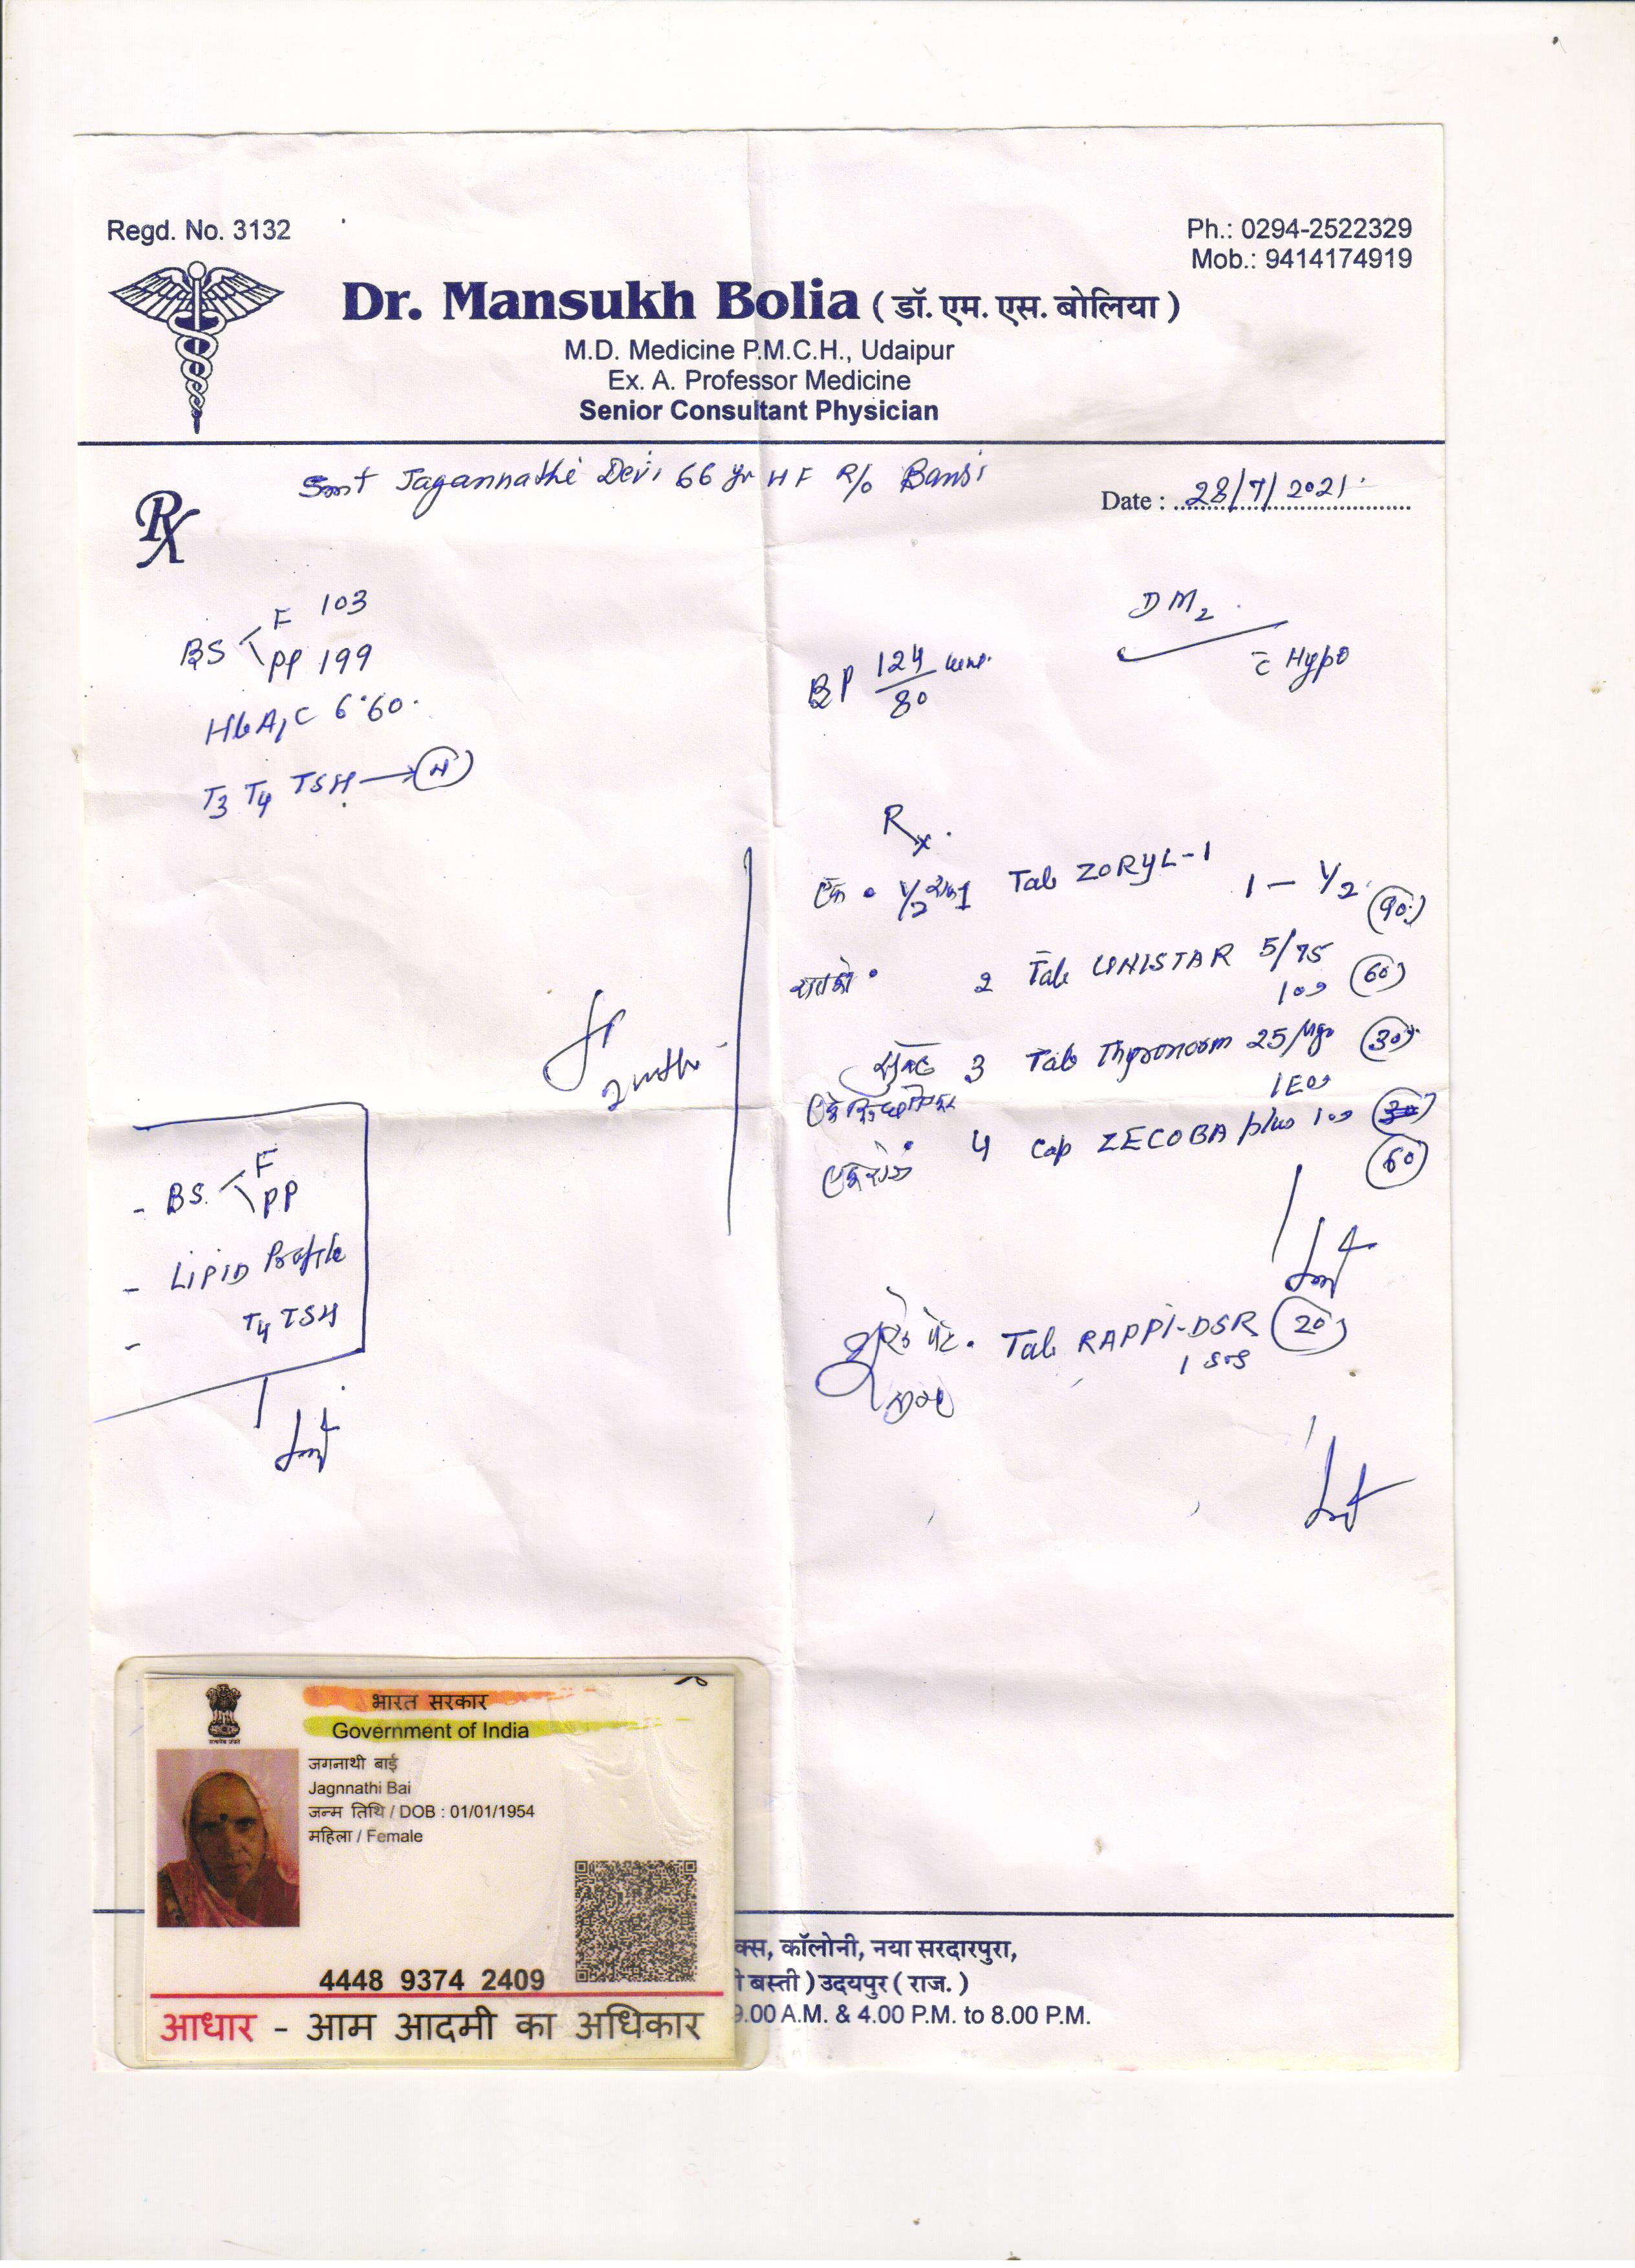 Regd. No. 3132
Ph.: 0294-2522329
Mob.: 9414174919
Dr. Mansukh Bolia ( डॉ. एम. एस. बोलिया )
M.D. Medicine P.M.C.H., Udaipur
Ex. A. Professor Medicine
Senior Consultant Physician
Smt Jagannathi Devi 66 yr HF R/o Bansi
Date : 28/7/2021
Rx
BS F 103
PP 199
HbA1C 6.60
T3 T4 TSH → N
DM2
c̄ Hypo
BP 124/80
Rx
1/2 Tab ZORYL-1 1 — 1/2 90
2 Tab UNISTAR 5/75 60
3 Tab Thyronorm 25 30
4 Cap ZECOBA plus
60
Tab RAPPI-DSR 20
1 SOS
- BS F
PP
- LIPID Profile
- T4 TSH
भारत सरकार
Government of India
जगनाथी बाई
Jagnnathi Bai
जन्म तिथि / DOB : 01/01/1954
महिला / Female
4448 9374 2409
आधार - आम आदमी का अधिकार
क्स, कॉलोनी, नया सरदारपुरा,
बस्ती ) उदयपुर ( राज. )
9.00 A.M. & 4.00 P.M. to 8.00 P.M.